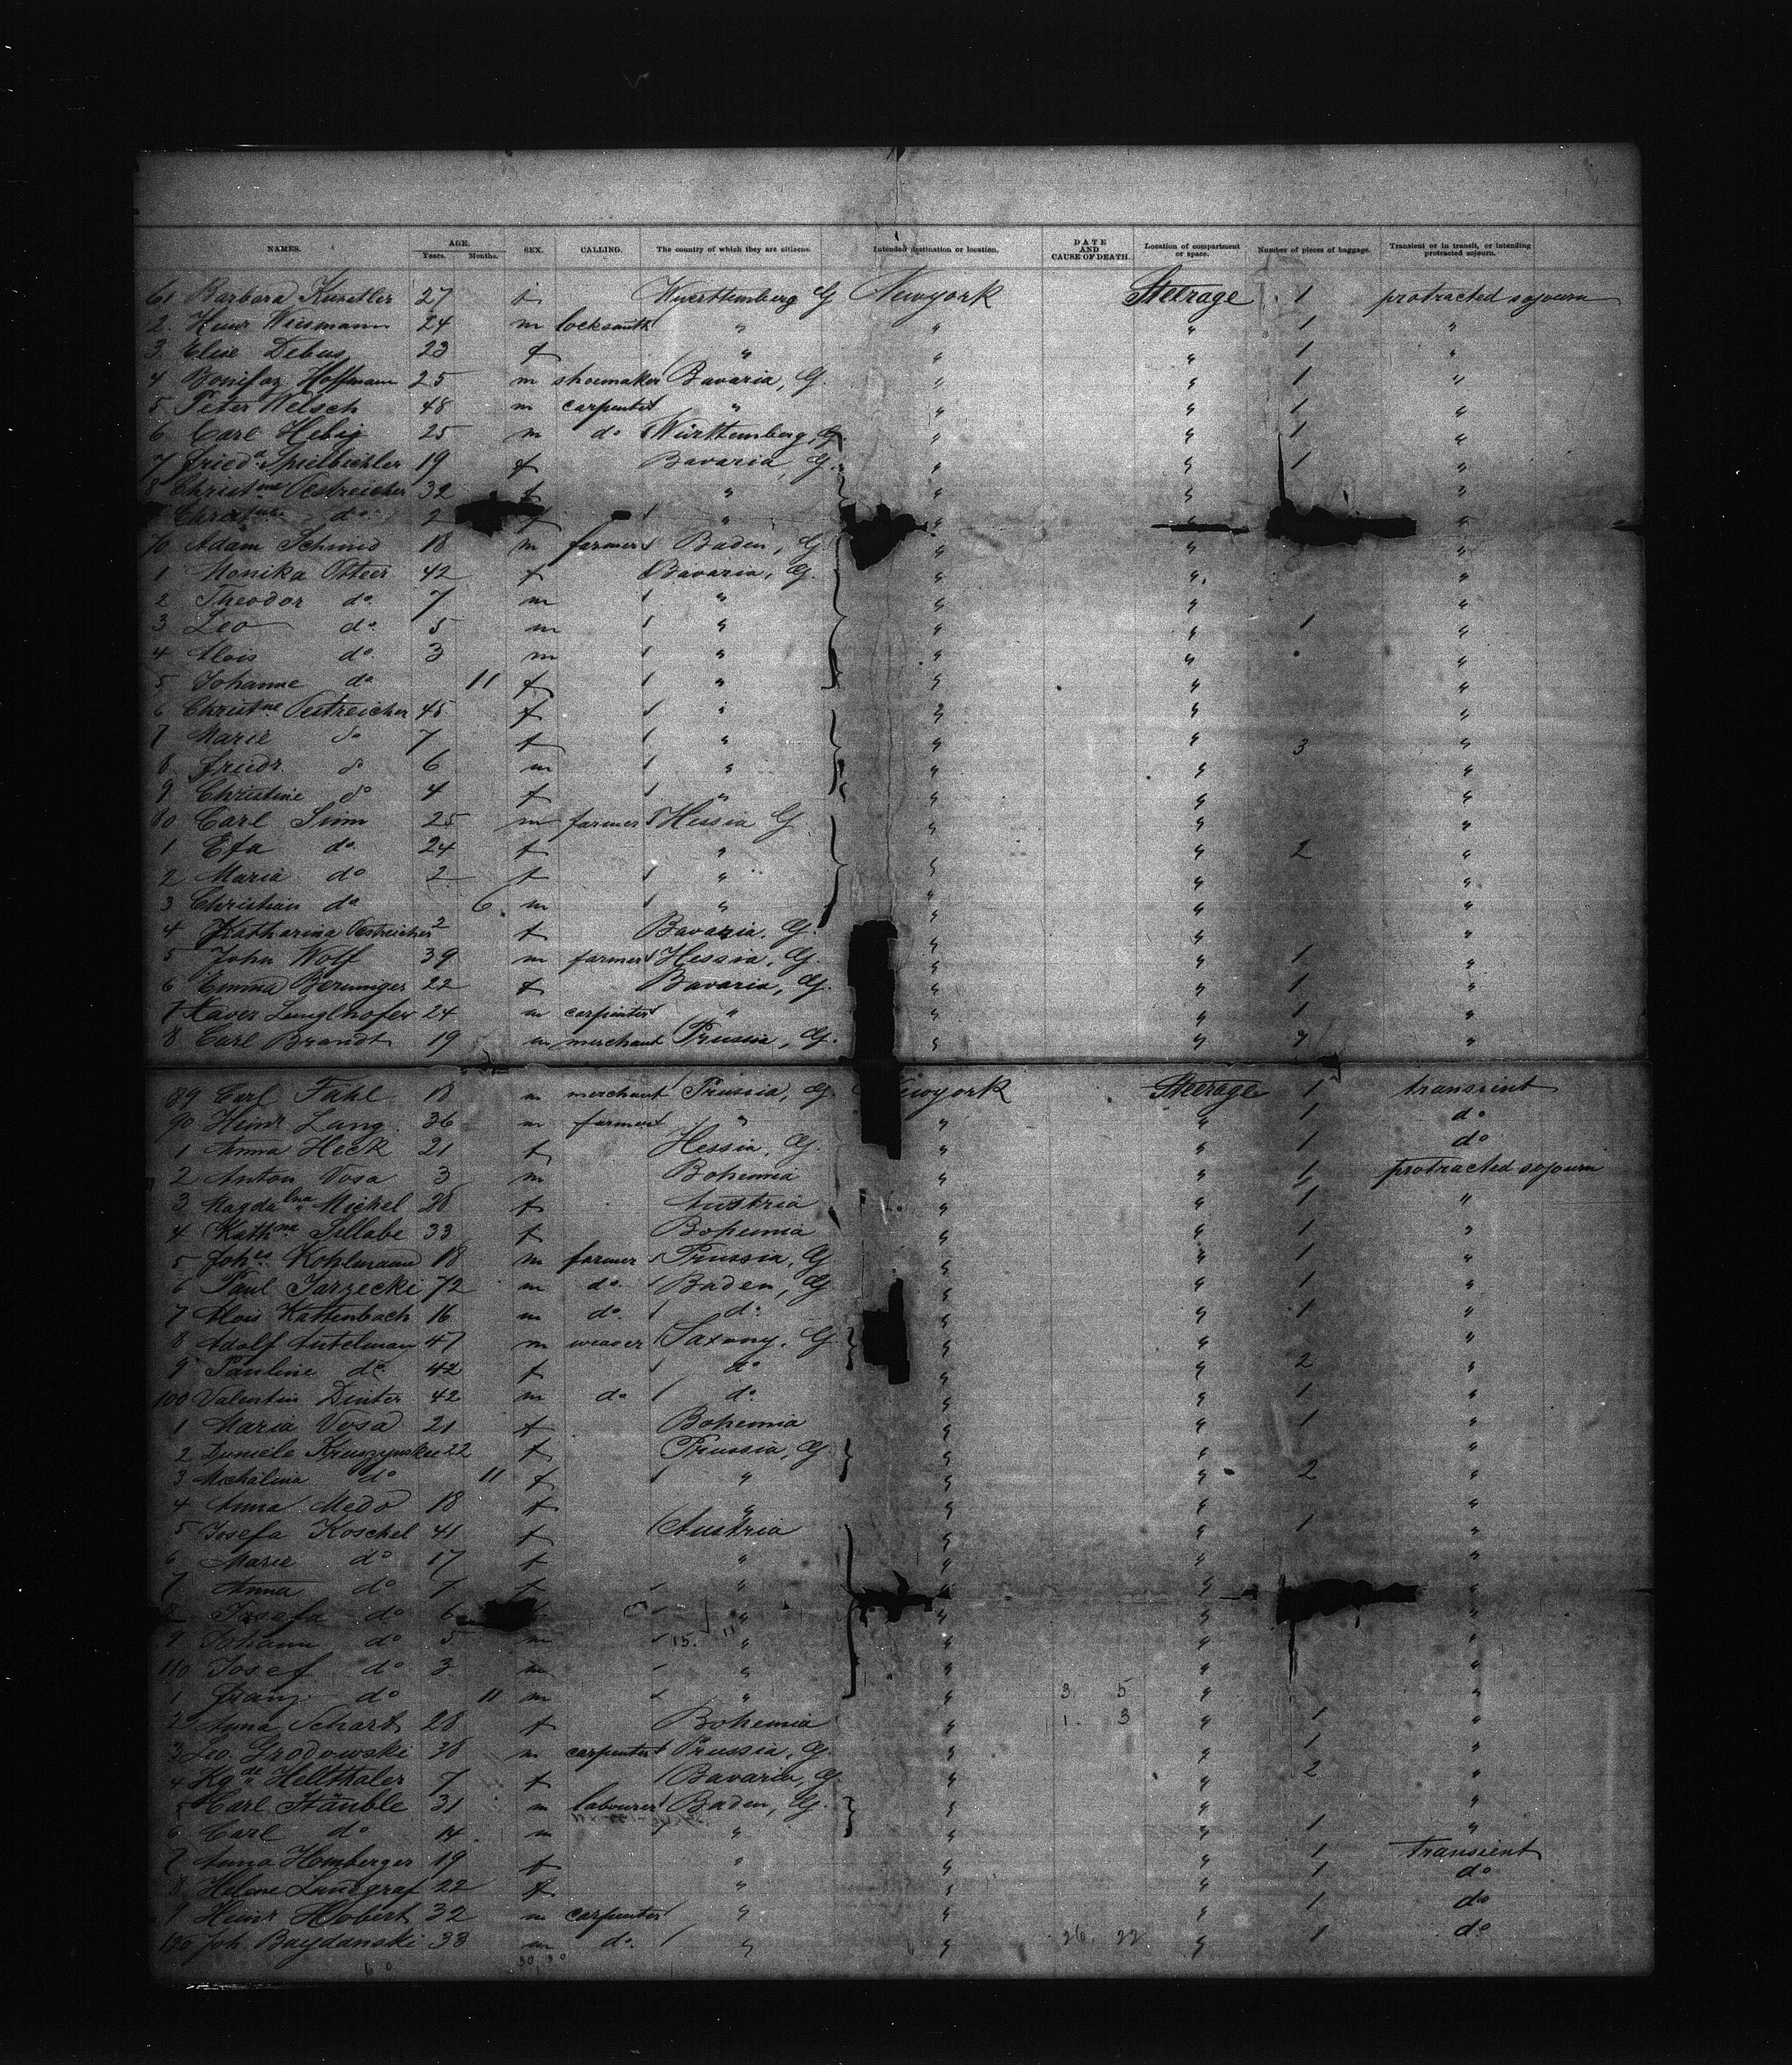 NAMES. AGE. Years. Months. SEX. CALLING. The country of which they are citizens. Intended destination or location. DATE AND CAUSE OF DEATH. Location of compartment or space. Number of pieces of baggage. Transient or in transit, or intending protracted sojourn.
61 Barbara Kunstler 27 f Wurttemberg G Newyork Steerage 1 protracted sojourn
2. Heinr Wiesmann 24 m locksmith " " " 1 "
3 Elise Debus 23 f " " " 1 "
4 Bonifaz Hoffmann 25 m shoemaker Bavaria, G. " " 1 "
5 Peter Welsch 48 m carpenter " " " 1 "
6 Carl Hebig 25 m do Württemberg, G. " " 1 "
7 Fried.a Spielbichler 19 f Bavaria, G. " " 1 "
8 Christine Oestreicher 32 f " " " "
do 2 f " " " "
70 Adam Schmid 18 m farmer Baden, G " " "
1 Monika Otteer 42 f Bavaria, G. " " "
2 Theodor do 7 m " " " "
3 Leo do 5 m " " " 1 "
4 Alois do 3 m " " " "
5 Johanne do 11 f " " " "
6 Christine Oestreicher 45 f " " " "
7 Marie do 7 f " " " 3 "
8 Friedr. do 6 m " " " "
9 Christine do 4 f " " " "
80 Carl Simm 25 m farmer Hessia G " " "
1 Efa do 24 f " " " 2 "
2 Maria do 2 f " " " "
3 Christian do 6 m " " " "
4 Katharina Oestreicher 2 f Bavaria. G. " " "
5 John Wolf 39 m farmer Hessia, G. " " 1 "
6 Emma Berminger 22 f Bavaria, G. " " 1 "
7 Xaver Lunglhofer 24 m carpenter " " " 1 "
8 Carl Brandt 19 m merchant Prussia, G. " " " "
89 Carl Fahl 18 m merchant Prussia, G. ewyork Steerage 1 transient
90 Heinr Lang 36 m farmer " " " 1 do
1 Anna Heck 21 f Hessia, G. " " 1 do
2 Anton Vosa 3 m Bohemia " " 1 protracted sojourn
3 Magdalena Michel 28 f Austria " " 1 "
4 Kathna Sillabe 33 f Bohemia " " 1 "
5 Johes Kohlmann 18 m farmer Prussia, G " " 1 "
6 Paul Jarzecki 72 m do. Baden, G " " 1 "
7 Alois Kattenbach 16 m do. do. " " 1 "
8 Adolf Antelman 47 m weaver Saxony, G. " " "
9 Pauline do. 42 f do " " 2 "
100 Valentin Dinter 42 m do do. " " 1 "
1 Maria Vosa 21 f Bohemia " " 1 "
2 22 f Prussia, G. " " "
3 Michalina do 11 f " " " 2 "
4 Anna Medo 18 f " " " "
5 Josefa Koschel 41 f Austria " " 1 "
6 Marie do 17 f " " " "
7 Anna do 7 f " " " "
Josefa do 6 " " " "
9 Johann do 5 m 15. 11 " " " "
110 Josef do 3 m " " " "
1 Franz. do 11 m " " 3 5 " "
2 Anna Schart 28 f Bohemia " 1. 3 " 1 "
3 Leo. Grodowski 38 m carpenter Prussia, G. " " 1 "
4 Kgde Hellthaler 7 f Bavaria, G. " " 2 "
5 Carl Stäuble 31 m labourer Baden, G. " " "
6 Carl do 14 m " " " 1 "
7 Anna Homberger 19 f " " " 1 transient
8 Helene Landgraf 22 f " " " 1 do
9 Heinr Hobert 32 m carpenter " " " 1 do
120 Joh. Baydanski 33 m do. " " 26, 22 " 1 do
60 30,30